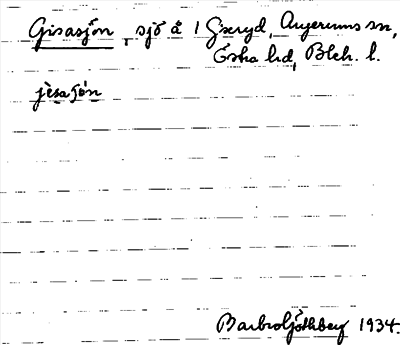 Gisasjön, sjö å 1 Giseryd, Augerums sn,
Östra hd, Blek. l.
jɩ̀sasjön
Barbro Götherg 1934.